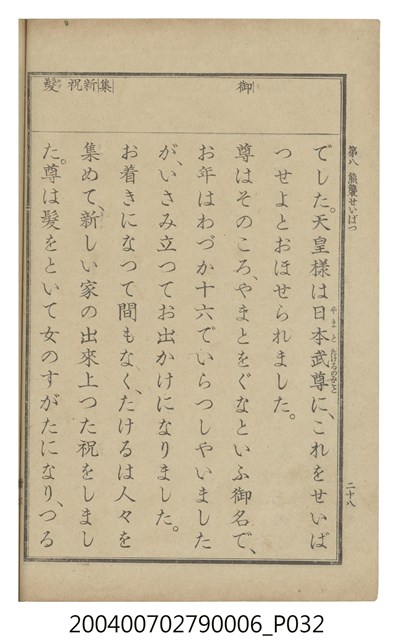 第八 熊襲せいばつ 二十八
御 集 新 祝 髮
でした。天皇樣は日本武尊に、これをせいば
つせよとおほせられました。
尊はそのころ、やまとをぐなといふ御名で、
お年はわづか十六でいらつしやいました
が、いさみ立つてお出かけになりました。
お着きになつて間もなく、たけるは人々を
集めて、新しい家の出來上つた祝をしまし
た。尊は髮をといて女のすがたになり、つる
200400702790006_P032